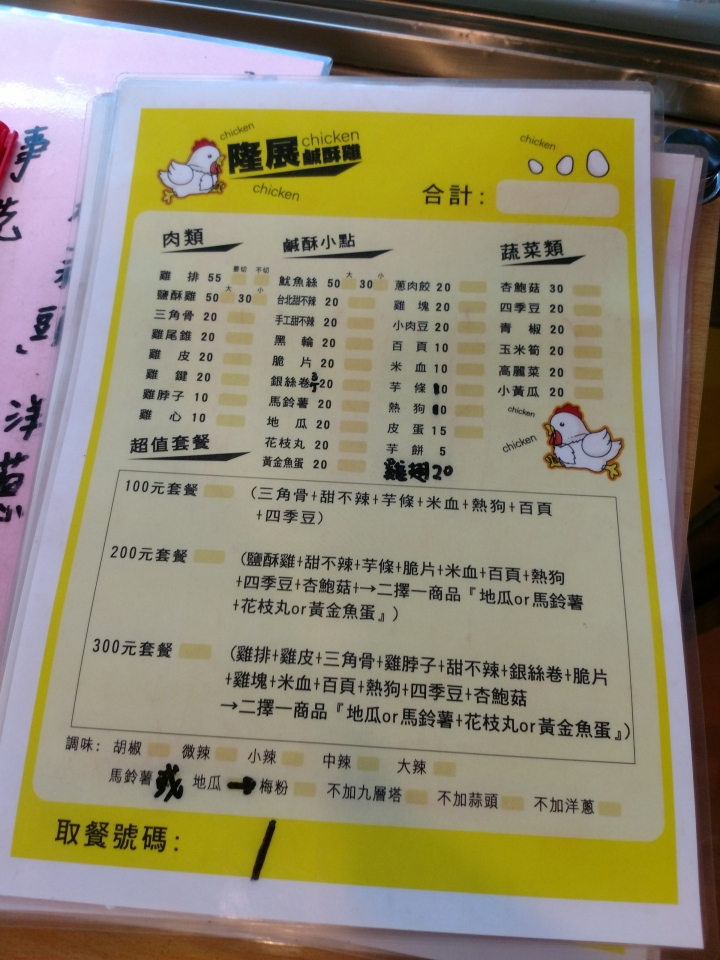 chicken
隆展鹹酥雞
chicken
chicken
chicken
合計：
肉類
要切 不切
雞排 55
大 小
鹽酥雞 50 30
三角骨 20
雞尾錐 20
雞皮 20
雞鍵 20
雞脖子 10
雞心 10
鹹酥小點
大 小
魷魚絲 50 30
台北甜不辣 20
手工甜不辣 20
黑輪 20
脆片 20
銀絲卷 20
馬鈴薯 20
地瓜 20
花枝丸 20
黃金魚蛋 20
蔥肉餃 20
雞塊 20
小肉豆 20
百頁 10
米血 10
芋條
熱狗
皮蛋 15
芋餅 5
雞翅20
蔬菜類
杏鮑菇 30
四季豆 20
青椒 20
玉米筍 20
高麗菜 20
小黃瓜 20
chicken
chicken
超值套餐
100元套餐 （三角骨+甜不辣+芋條+米血+熱狗+百頁
+四季豆）
200元套餐 （鹽酥雞+甜不辣+芋條+脆片+米血+百頁+熱狗
+四季豆+杏鮑菇+→二擇一商品『地瓜or馬鈴薯
+花枝丸or黃金魚蛋』）
300元套餐 （雞排+雞皮+三角骨+雞脖子+甜不辣+銀絲卷+脆片
+雞塊+米血+百頁+熱狗+四季豆+杏鮑菇
→二擇一商品『地瓜or馬鈴薯+花枝丸or黃金魚蛋』）
調味： 胡椒 微辣 小辣 中辣 大辣
馬鈴薯或地瓜→梅粉 不加九層塔 不加蒜頭 不加洋蔥
取餐號碼： 1